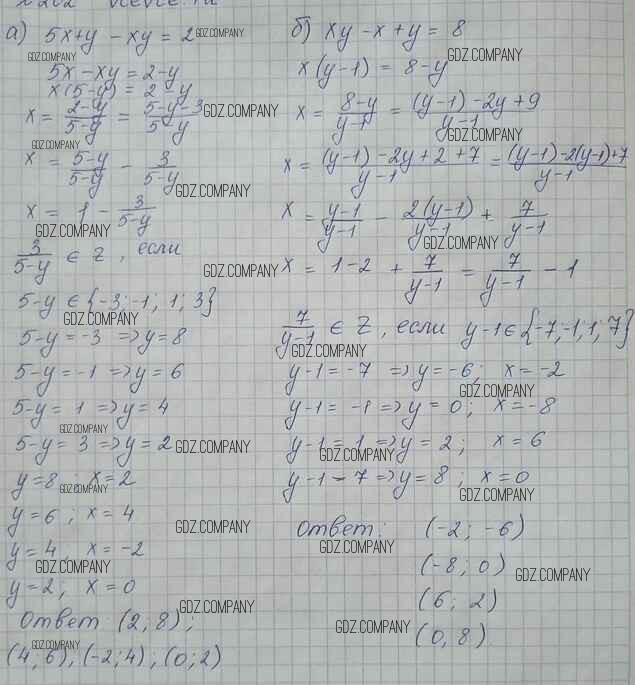 а) 5x+y-xy = 2
5x-xy = 2-y
x(5-y) = 2-y
x = (2-y)/(5-y) = (5-y-3)/(5-y)
x = (5-y)/(5-y) - 3/(5-y)
x = 1 - 3/(5-y)
3/(5-y) ∈ Z, если
5-y ∈ {-3; -1; 1; 3}
5-y = -3 => y = 8
5-y = -1 => y = 6
5-y = 1 => y = 4
5-y = 3 => y = 2
y = 8; x = 2
y = 6; x = 4
y = 4, x = -2
y = 2; x = 0
Ответ (2; 8);
(4; 6); (-2; 4); (0; 2)
б) xy-x+y = 8
x(y-1) = 8-y
x = (8-y)/(y-1) = ((y-1)-2y+9)/(y-1)
x = ((y-1)-2y+2+7)/(y-1) = ((y-1)-2(y-1)+7)/(y-1)
x = (y-1)/(y-1) - 2(y-1)/(y-1) + 7/(y-1)
x = 1-2 + 7/(y-1) = 7/(y-1) - 1
7/(y-1) ∈ Z, если y-1 ∈ {-7; -1; 1; 7}
y-1 = -7 => y = -6; x = -2
y-1 = -1 => y = 0; x = -8
y-1 = 1 => y = 2; x = 6
y-1 - 7 => y = 8; x = 0
Ответ: (-2; -6)
(-8; 0)
(6; 2)
(0, 8)
GDZ.COMPANY